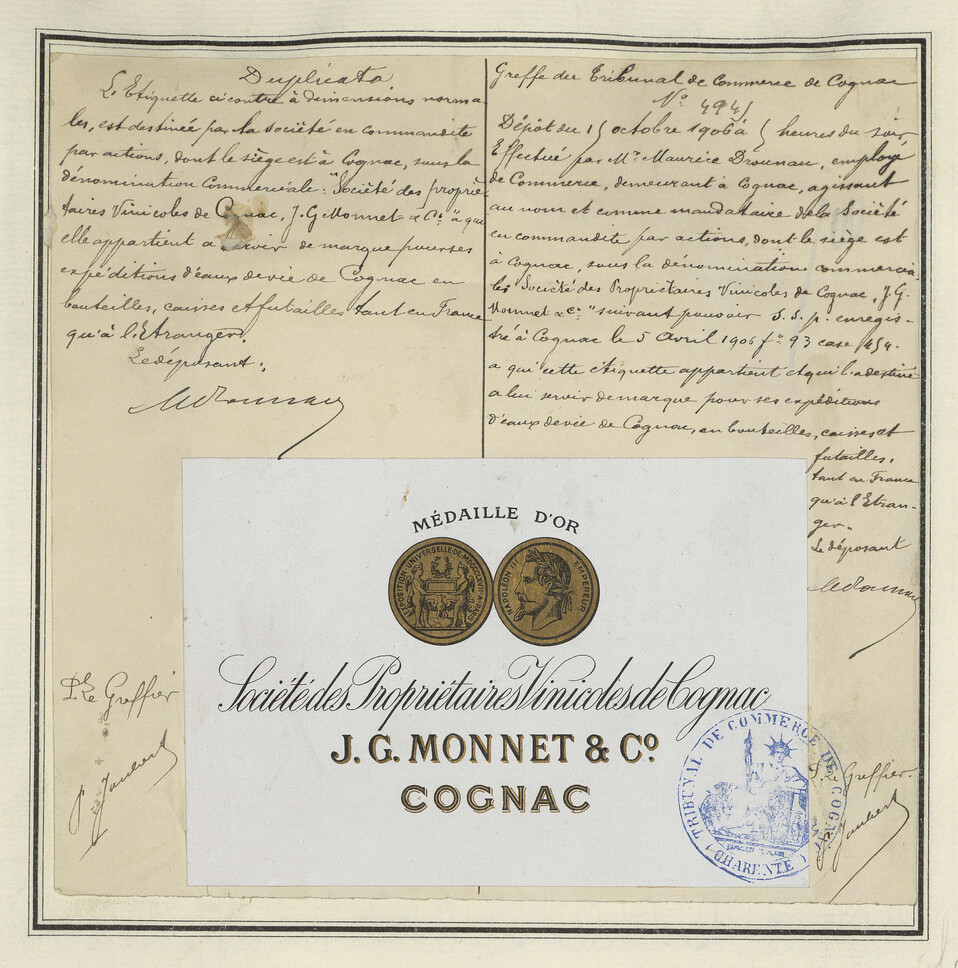 Duplicata
L'Etiquette ci contre à dimensions norma-
les, est destinée par la société en commandite
par actions, dont le siège est à Cognac, sous la
dénomination Commerciale: "Société des proprié-
taires Vinicoles de Cognac, J. G Monnet & Cie" à qui
elle appartient a servir de marque pour ses
expéditions d'eaux de vie de Cognac en
bouteilles, caisses et futailles tant en France
qu'à l'Etranger.
Le déposant.
Greffe du Tribunal de Commerce de Cognac
No. 4945
Dépôt du 15 octobre 1906 à 5 heures du soir
Effectué par Mr. Maurice Drounau, employé
de Commerce, demeurant à Cognac, agissant
au nom et comme mandataire de la Société
en commandite par actions, dont le siège est
à Cognac, sous la dénomination commercia-
le: Société des Propriétaires Vinicoles de Cognac, J. G.
Monnet & Cie" suivant pouvoir S. S. p. enregis-
tré à Cognac le 5 Avril 1906 fo. 93 case 454.
a qui cette étiquette appartient et qui l'a destiné
a lui servir de marque pour ses expéditions
d'eaux de vie de Cognac, en bouteilles, caisses et
futailles,
tant en France
qu'à l'Etran-
ger.
Le déposant
MÉDAILLE D'OR
EXPOSITION UNIVERSELLE DE MDCCCLXVII A PARIS
NAPOLEON III EMPEREUR
Société des Propriétaires Vinicoles de Cognac
J. G. MONNET & Co.
COGNAC
Pr. Le Greffier
Joubert
TRIBUNAL DE COMMERCE DE COGNAC
(CHARENTE)
P. Le Greffier
Joubert